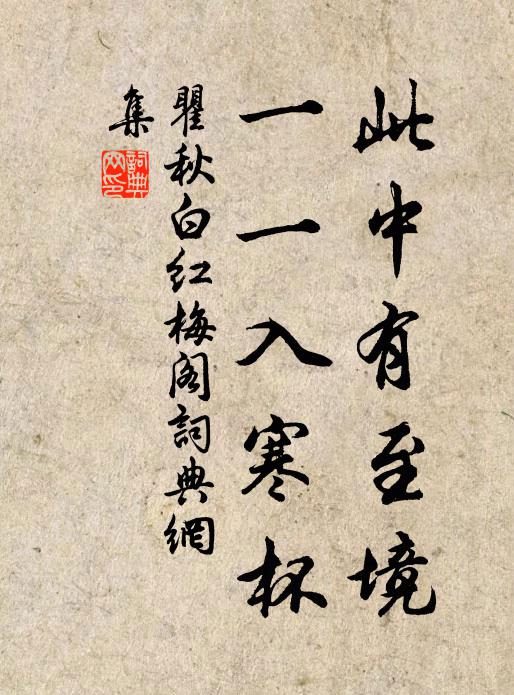 此中有至境
一一入寒杯
瞿秋白红梅阁詞典網
集
詞典網印